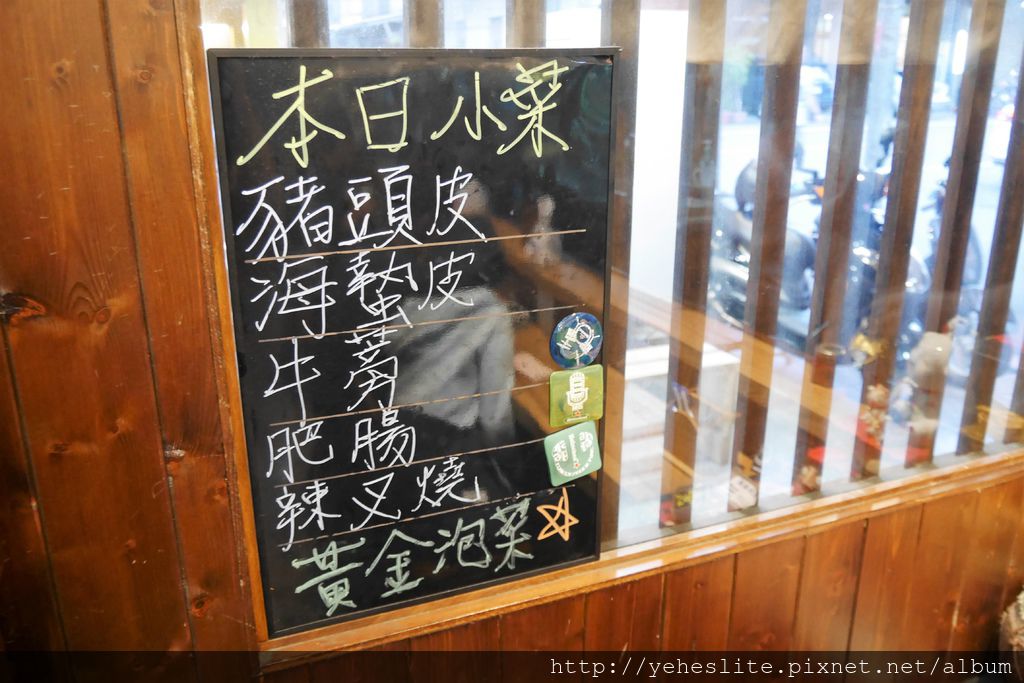 本日小菜
豬頭皮
海蟄皮
牛蒡
肥腸
辣叉燒
黃金泡菜
http://yeheslite.pixnet.net/album